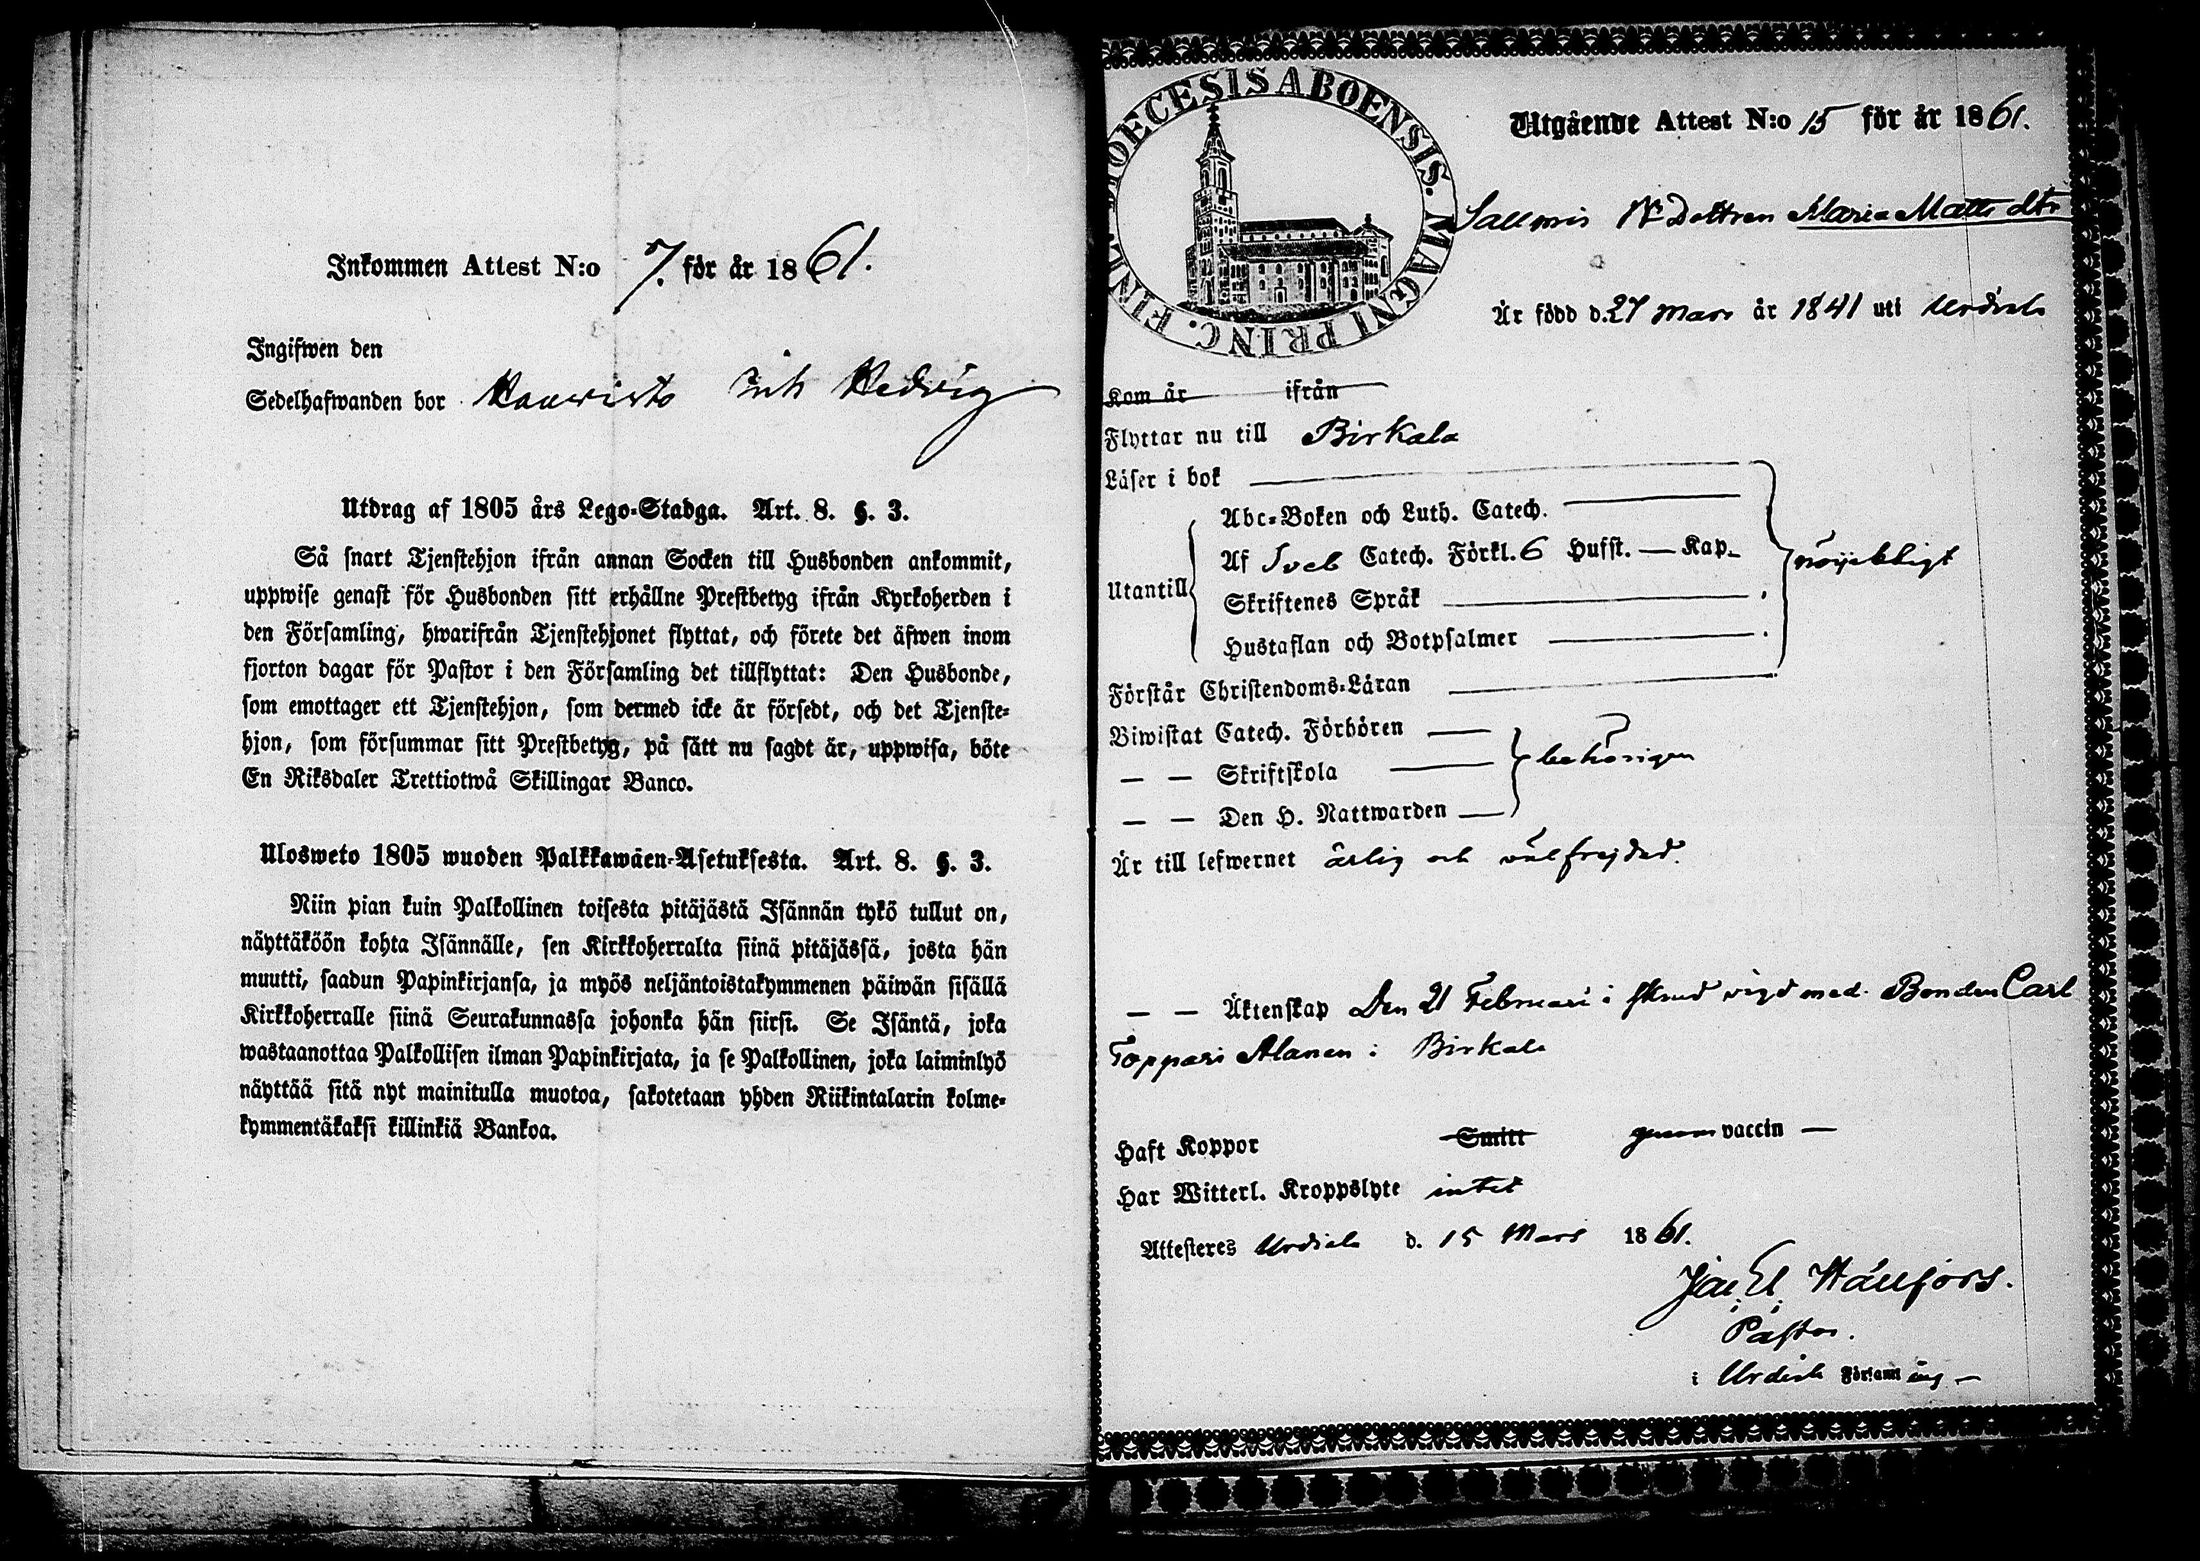 Inkommen Attest N:o 7. för år 1861.
Ingifwen den
Sedelhafwanden bor Hedvig
Utdrag af 1805 års Lego-Stadga. Art. 8. §. 3.
Så snart Tjenstehjon ifrån annan Socken till Husbonden ankommit,
uppwise genast för Husbonden sitt erhållne Prestbetyg ifrån Kyrkoherden i
den Församling, hwarifrån Tjenstehjonet flyttat, och förete det äfwen inom
fjorton dagar för Pastor i den Församling det tillflyttat: Den Husbonde,
som emottager ett Tjenstehjon, som dermed icke är försedt, och det Tjenste-
hjon, som försummar sitt Prestbetyg, på sätt nu sagdt är, uppwisa, böte
En Riksdaler Trettiotwå Skillingar Banco.
Ulosweto 1805 wuoden Palkkawäen-Asetuksesta. Art. 8. §. 3.
Niin pian kuin Palkollinen toisesta pitäjästä Isännän tykö tullut on,
näyttäköön kohta Isännälle, sen Kirkkoherralta siinä pitäjässä, josta hän
muutti, saadun Papinkirjansa, ja myös neljäntoistakymmenen päiwän sisällä
Kirkkoherralle siinä Seurakunnassa johonka hän siirsi. Se Isäntä, joka
wastaanottaa Palkollisen ilman Papinkirjata, ja se Palkollinen, joka laiminlyö
näyttää sitä nyt mainitulla muotoa, sakotetaan yhden Riikintalarin kolme-
kymmentäkaksi killinkiä Bankoa.
DIOECESIS ABOENSIS. MAGNI PRINC. FINL.
Utgående Attest N:o 15 för år 1861.
Dottren Maria Matts dtr
Är född d. 27 Mars år 1841 uti Urdiala
Kom år ifrån
Flyttar nu till Birkala
Läser i bok
Abc-Boken och Luth. Catech.
Af Sveb Catech. Förkl. 6 Hufst. — Kap.
Utantill
nöijaktigt
Skriftenes Språk
Hustaflan och Botpsalmer
Förstår Christendoms-Läran
Biwistat Catech. Förhören
— — Skriftskola
behörigen
— — Den H. Nattwarden
Är till lefwernet ärlig och välfrejdad.
— — Äktenskap Den 21 Februari i vigd med Bonden Carl
Toppari Alanen i Birkala
Haft Koppor Smitt genom vaccin —
Har Witterl. Kroppslyte intet
Attesteres Urdiala d. 15 Mars 1861.
Hällfors.
Pastor.
i Urdiala Församling —